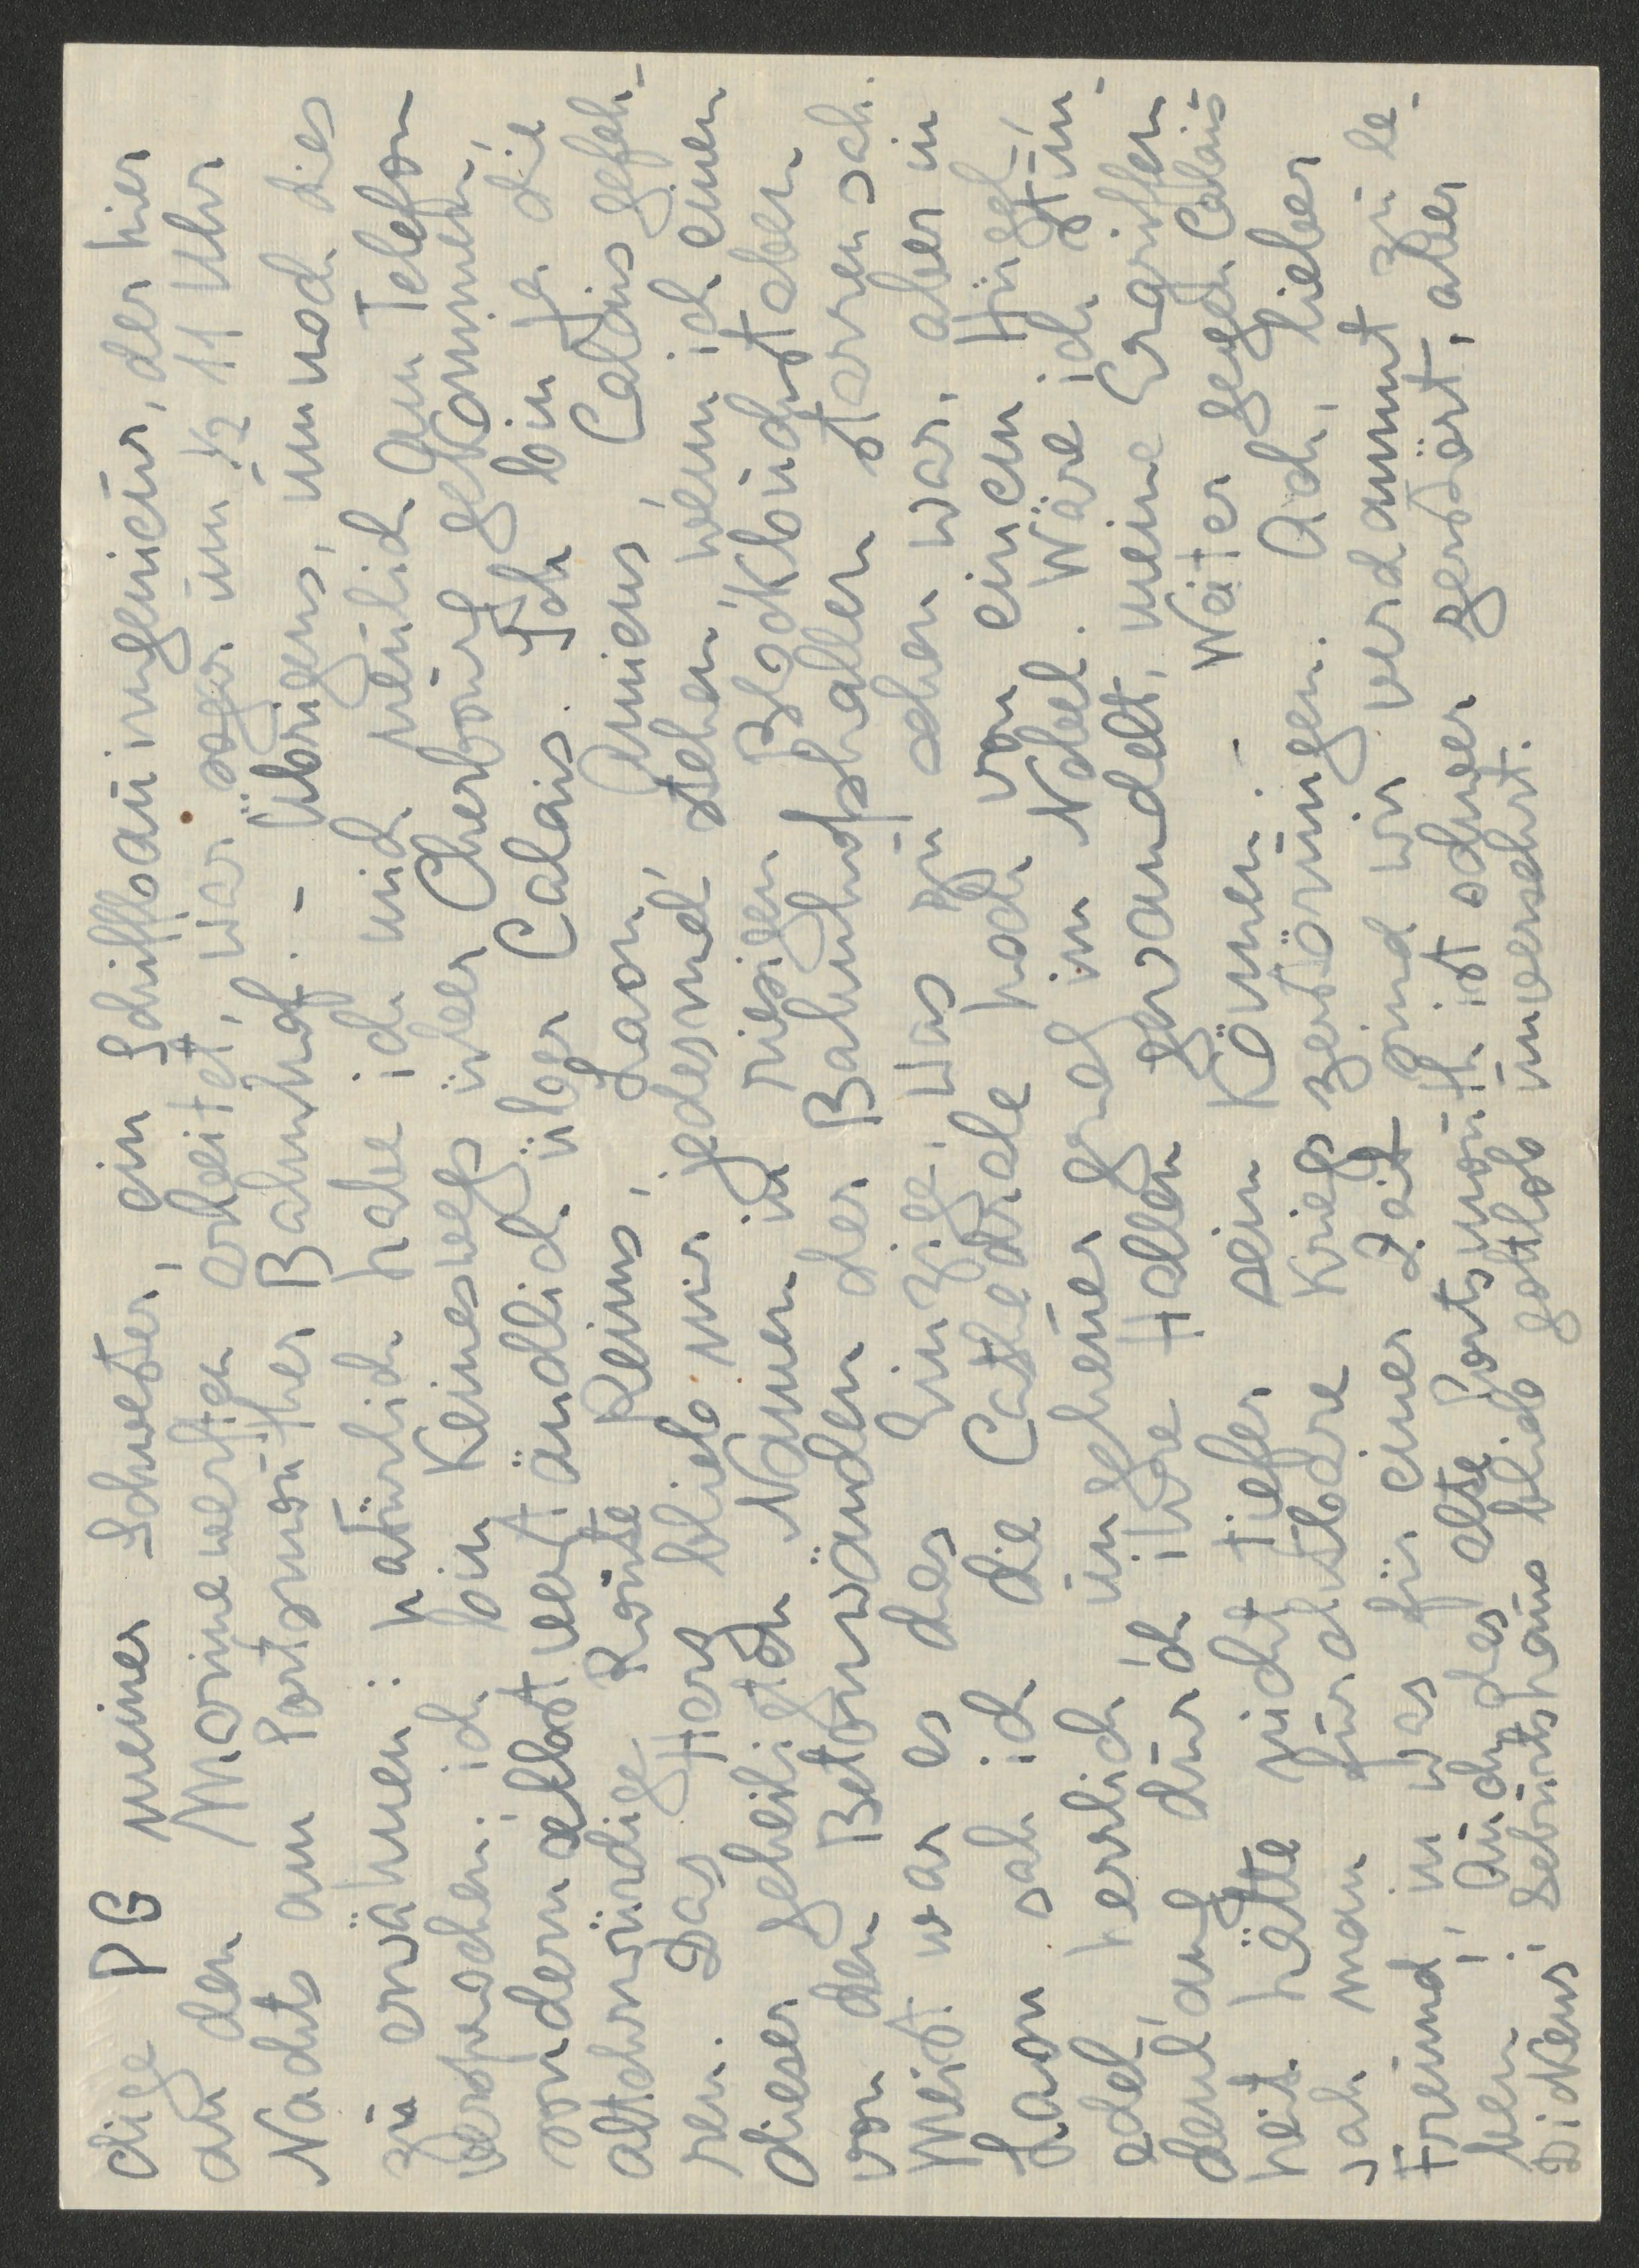 dige PG meiner Schwester, ein Schiffbauingenieur, der hier
an den Marinewerften arbeitet, war sogar um ½ 11 Uhr
Nachts am Portsmouther Bahnhof. – Übrigens, um noch dies
zu erwähnen: natürlich habe ich mich neulich am Telefon
versprochen: ich bin keineswegs über Cherbourg gekommen,
sondern selbstverständlich über Calais. Ich bin ja die
altehrwürdige Route Reims, Laon, Amiens, Calais gefah-
ren. Das Herz blieb mir jedesmal stehen, wenn ich einen
dieser geheiligten Namen in riesigen Blockbuchstaben
von den Betonwänden der Bahnhofshallen starren sah.
Meist war es das Einzige, was zu sehen war, aber in
Laon sah ich die Cathedrale hoch von einem Hügel,
edel, herrlich ungeheuer grau im Nebel. Wäre ich stun-
denlang durch ihre Hallen gewandelt, meine Ergriffen
heit hätte nicht tiefer sein können. – Weiter gegen Calais
sah man furchtbare Kriegszerstörungen. Ach, lieber
Freund, in was für einer Zeit sind wir verdammt zu le-
ben! Auch das alte Portsmouth ist schwer zerstört, aber
Dickens' Geburtshaus blieb gottlob unversehrt.